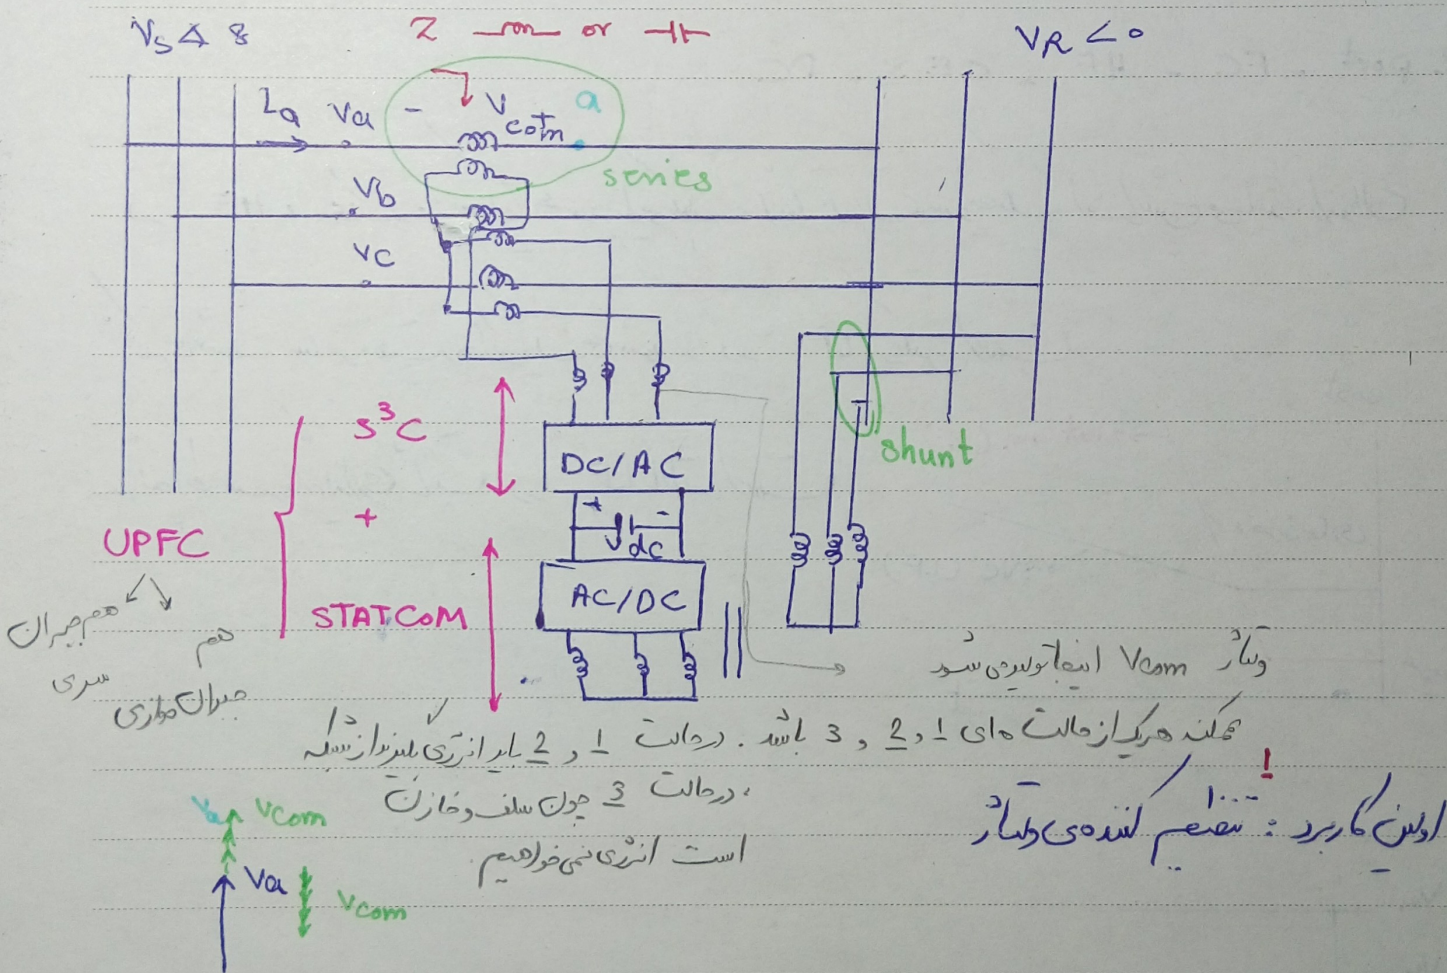 Vs ∡ δ
Z or
VR < 0
Ia Va - Vcom + a
series
Vb
Vc
S³C
DC/AC
shunt
+ -
Vdc
UPFC
+
AC/DC
STATCOM
هم جبران سری
هم جبران موازی
ولتاژ Vcom اینجا تولید می شود
ممکنه هر یک از حالت های 1 و 2 و 3 باشد. در حالت 1 و 2 باید انرژی بگیرند از شبکه
، در حالت 3 چون سلف و خازن
است انرژی نمی خواهیم.
اولین کاربرد : تنظیم کننده ی ولتاژ !
Va Vcom
Va
Vcom